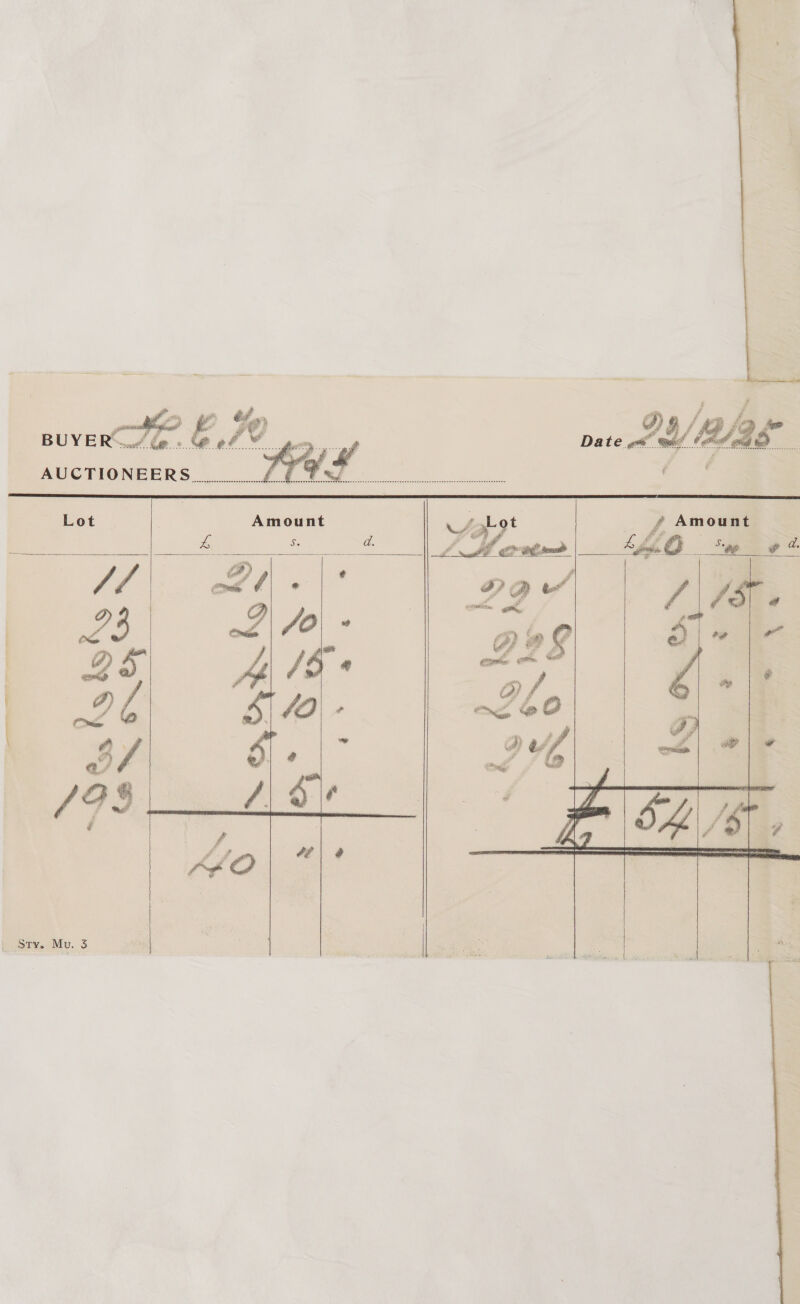 BUYER
Date /12/25
AUCTIONEERS
Lot Amount Lot Amount
£ s. d. £ 40 s. " " d.
11 21 . .
23 2 10 -
25 4 15 .
26 5 10 -
31 5 . -
193 1 5 .
40 " .
1 15 .
228 5 - -
260 6 - .
246 2 - -
£ 54 15 .
Sty. Mu. 3